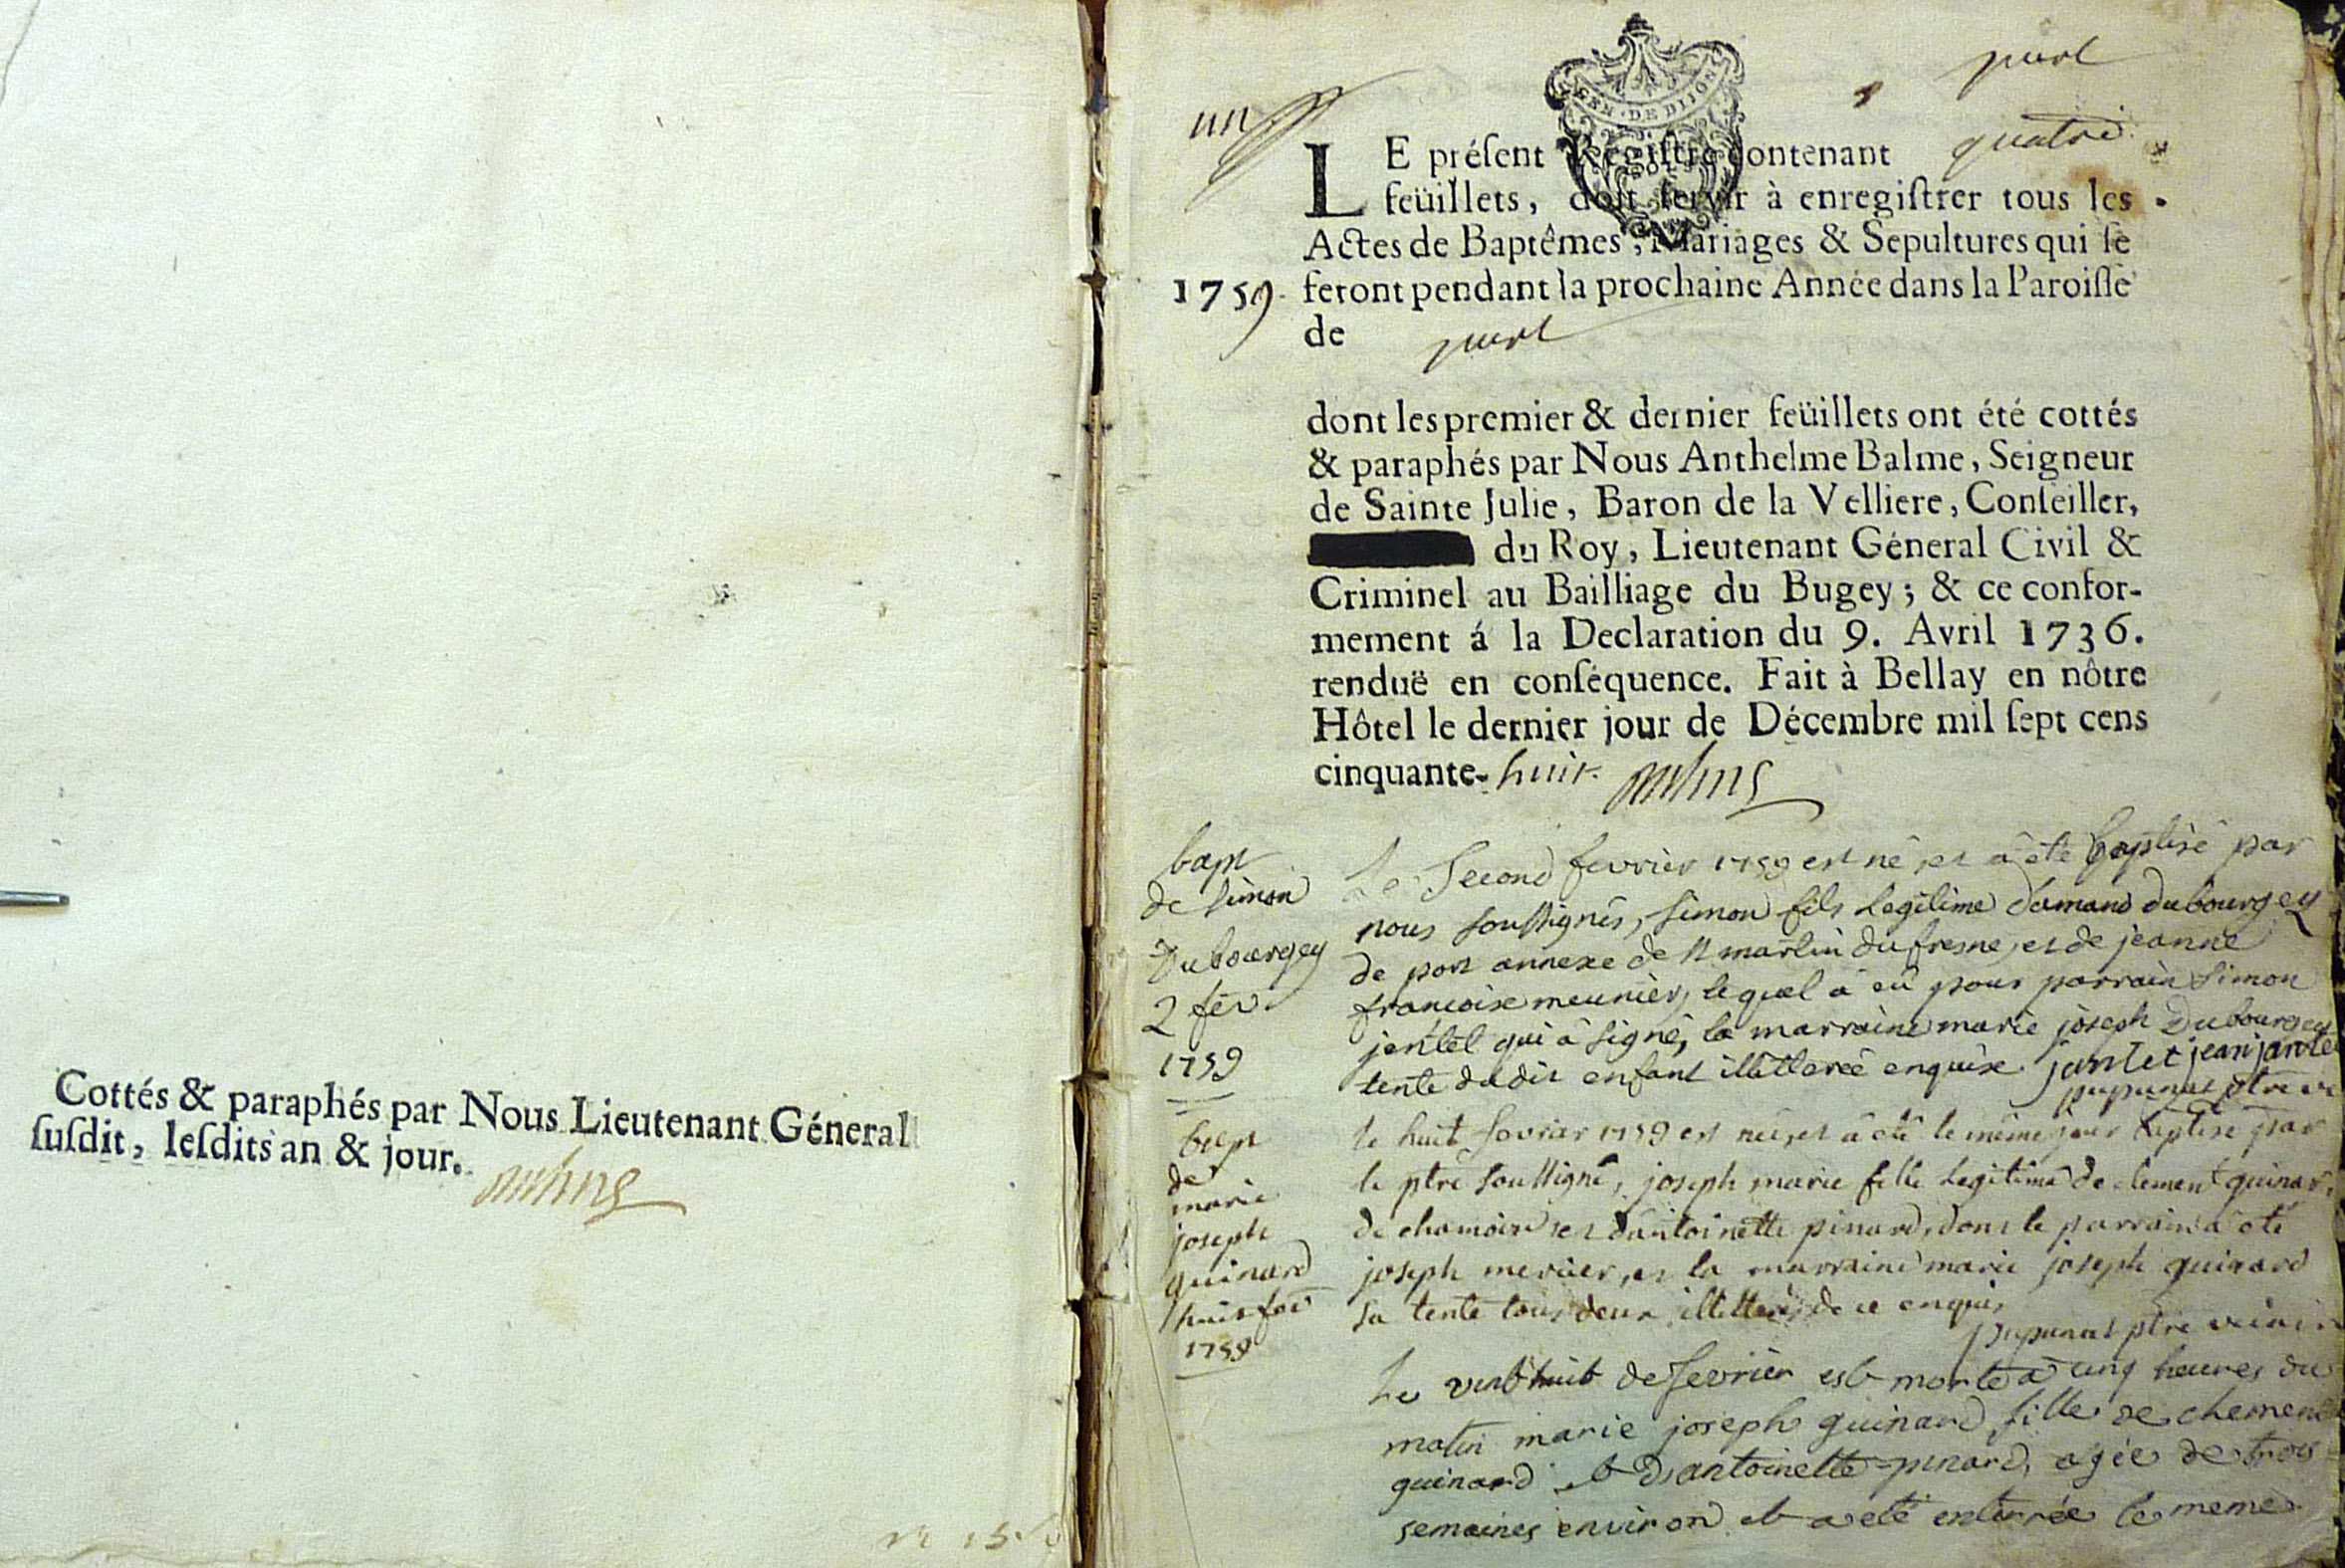 Cottés & paraphés par Nous Lieutenant Géneral
ſuſdit, leſdits an & jour.
port
un
GEN · DE DIJON
LE préſent Regiſtre contenant quatre
feüillets, doit ſervir à enregiſtrer tous les
Actes de Baptêmes, Mariages & Sepultures qui ſe
1759 feront pendant la prochaine Année dans la Paroiſſe
de port
dont les premier & dernier feüillets ont été cottés
& paraphés par Nous Anthelme Balme, Seigneur
de Sainte Julie, Baron de la Velliere, Conſeiller,
du Roy, Lieutenant Géneral Civil &
Criminel au Bailliage du Bugey; & ce confor-
mement á la Declaration du 9. Avril 1736.
renduë en conſéquence. Fait à Bellay en nôtre
Hôtel le dernier jour de Décembre mil ſept cens
cinquante-huit
bapt
de simon
Dubourgey
2 fev
1759
Le Second fevrier 1759 est né, et a été baptisé par
nous soussignés, simon fils legitime damand dubourgey
de port annexe de st martin du fresne, et de jeanne
francoise meunier, lequel a eû pour parrain simon
jentet qui a signé, la marraine marie joseph Dubourgey
tente dudit enfant illetterée enquise jantet jean jantet
pupunat ptre
bapt
de
marie
joseph
guinard
huit fev
1759
le huit fevrier 1759 est née, et a été le même jour baptisé par
le ptre soussigné, joseph marie fille legitime de clement guinar
de chamoise et d'antoinette pinard, dont le parrain a été
joseph mercier, et la marraine marie joseph guinard
sa tente tous deux illetterés de ce enquis
pupunat ptre vicair
Le vint huit de fevrier est morte a cinq heures du
matin marie joseph guinard fille de clement
guinard et d'antoinette pinard, agée de trois
semaines environ et a eté enterrée le meme